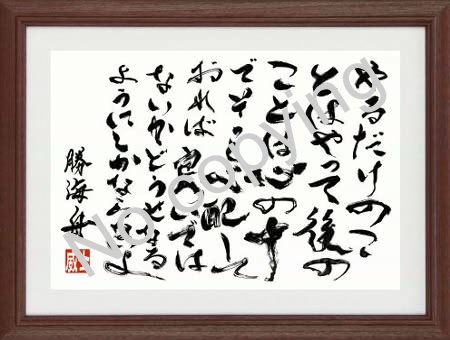 やるだけのこ
とはやって後の
ことは心の中
でそっと心配して
おれば良いでは
ないかどうせなる
ようにしかならないよ
勝海舟
No copying